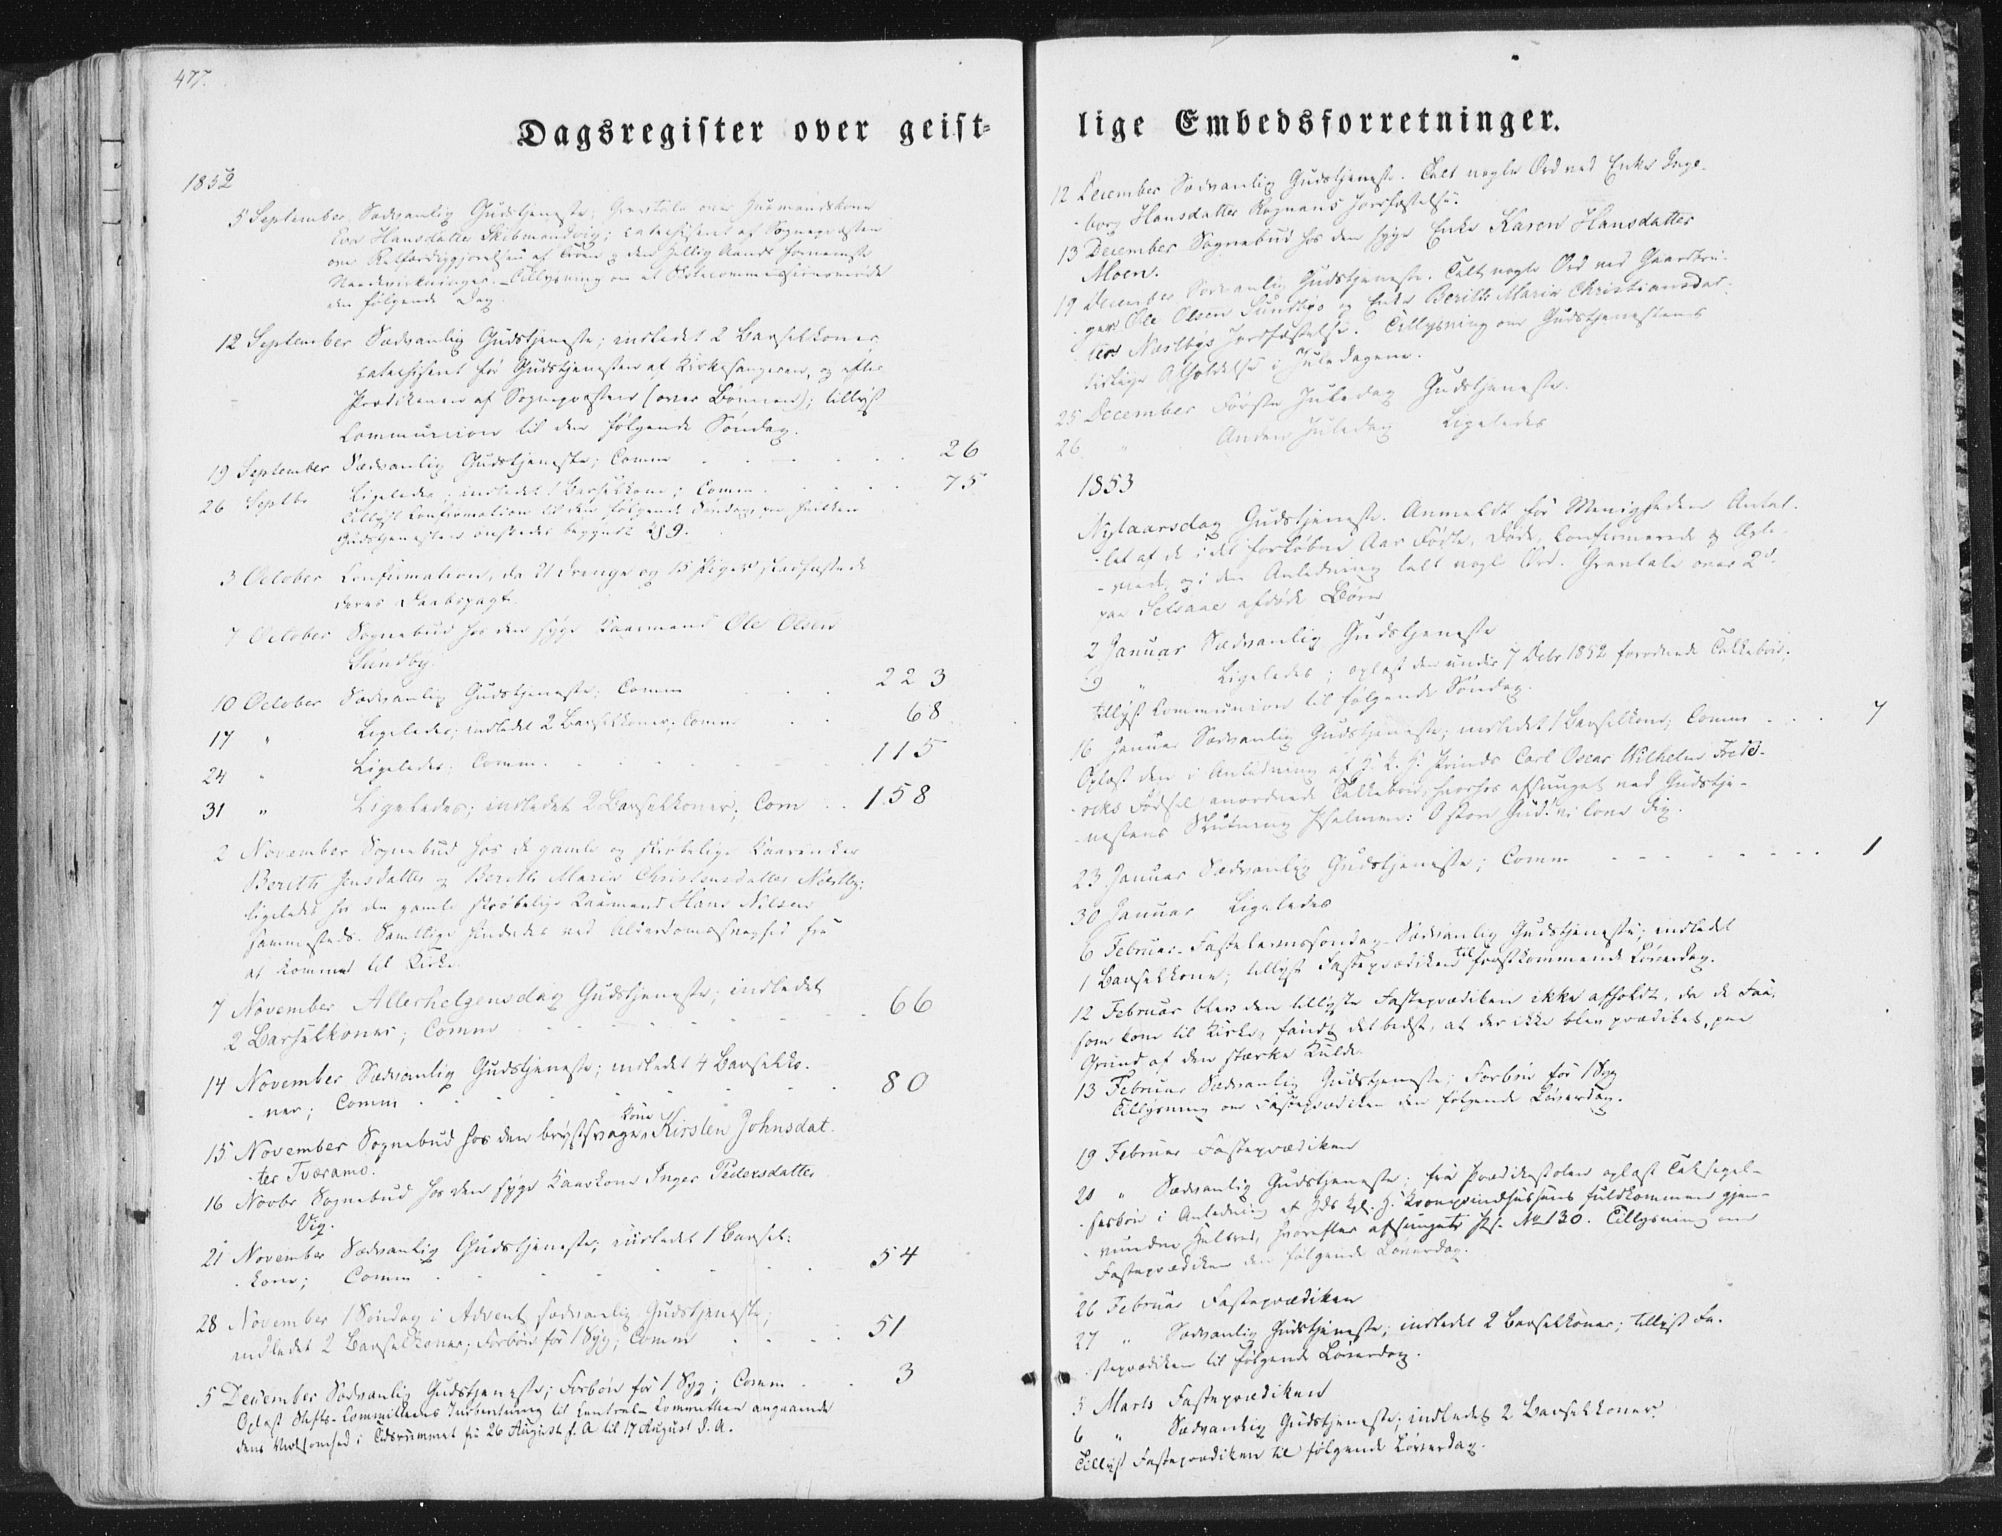 477.
Dagsregister over geist-
1852
5 September, Sædvanlig Gudstjeneste; Gravtale over Huusmandskone
Eva Hansdatter Skibmandvig; catechiseret af Sognepræsten
om Retfærdiggjørelsen af Troen og den Hellig Aands fornemste
Naadevirkninger. Tillysning om et Commissionsmøde
den følgende Dag.
12 September Sædvanlig Gudstjeneste; indledet 2 Barselkoner,
catechiseret før Gudstjenesten af Kirkesangeren, og efter
Prædikenen af Sognepræsten (over Bønnen); tillyst
Communion til den følgende Søndag.
19 September Sædvanlig Gudstjeneste; Comm 26
26 Septbr Ligeledes; indledet 1 Barselkone; Comm. 75
Tillyst Confirmation til den følgende Søndag, paa hvilken
Gudstjenesten ønskedes begyndt Kl 9.
3 October Confirmation, da 21 Drenge og 15 Piger stadfæstede
deres Daabspagt.
7 October Sognebud hos den syge Kaarmand Ole Olsen
Sundby.
10 October Sædvanlig Gudstjeneste; Comm 223
17 " Ligeledes; indledet 2 Barselkoner; Comm 68
24 " Ligeledes; Comm. 115
31 " Ligeledes; indledet 2 Barselkoner; Com 158
2 November Sognebud hos de gamle og skrøbelige Kaarenker
Beritte Jensdatter og Beritte Maria Christensdatter Næstby;
ligeledes hos den gamle skrøbelige Kaarmand Hans Nilsen
sammesteds. Samtlige hindrede ved Alderdomssvaghed fra
at komme til Kirke.
7 November Allerhelgensdag Gudstjeneste; indledet
2 Barselkoner; Comm 66
14 November Sædvanlig Gudstjeneste; indledet 4 Barselko-
ner; Comm 80
15 November Sognebud hos den brystsvage Kone Kirsten Johnsdat-
ter Tveramo.
16 Novbr Sognebud hos den syge Kaarkone Inger Pedersdatter
Vig.
21 November Sædvanlig Gudstjeneste; indledet 1 Barsel-
kone; Comm 54
28 November 1 Søndag i Advent, sædvanlig Gudstjeneste;
indledet 2 Barselkoner; Forbøn for 1 Syg; Comm 51
5 December Sædvanlig Gudstjeneste; Forbøn for 1 Syg; Comm 3
Oplæst Stifts-Committeens Indberetning til Central-Committeen angaaende
dens Virksomhed i Tidsrummet fra 26 August f. A til 17 August d. A.
lige Embedsforretninger.
12 December Sædvanlig Gudstjeneste. Talt nogle Ord ved Enke Inge-
borg Hansdatter Rognans Jordfæstelse.
13 December Sognebud hos den syge Enke Karen Hansdatter
Moen.
19 December Sædvanlig Gudstjeneste. Talt nogle Ord ved Gaardbru-
ger Ole Olsen Sundbys og Enke Beritte Maria Christiansdat-
ters Næstbys Jordfæstelse. Tillysning om Gudstjenestens
Afholdelse i Juledagene.
25 December Første Juledag Gudstjeneste.
26 " Anden Juledag Ligeledes
1853
Nytaarsdag Gudstjeneste. Anmeldt for Menigheden Antal-
let af de i det forløbne Aar Fødte, Døde, Confirmerede & Ægte-
viede, og i den Anledning talt nogle Ord. Gravtale over 2de
paa Selsaae afdøde Børn
2 Januar Sædvanlig Gudstjeneste
9 " Ligeledes; oplæst den under 7 Debr 1852 forordnede Takkebøn;
tillyst Communion til følgende Søndag.
16 Januar Sædvanlig Gudstjeneste; indledet 1 Barselkone; Comm 7
Oplæst den i Anledning af H. K. H. Prinds Carl Oscar Wilhelm Frede-
riks Fødsel anordnede Takkebøn, hvorhos afsunget ved Gudstje-
nestens Slutning Psalmen: O store Gud! vi love dig.
23 Januar Sædvanlig Gudstjeneste; Comm 1
30 Januar Ligeledes
6 Februar Fastelavnssøndag Sædvanlig Gudstjeneste; indledet
1 Barselkone; tillyst Fasteprædiken til førstkommende Løverdag.
12 Februar blev den tillyste Fasteprædiken ikke afholdt, da de Faa,
som kom til Kirke, fandt det bedst, at der ikke blev prædiket, paa
Grund af den stærke Kulde.
13 Februar Sædvanlig Gudstjeneste; Forbøn for 1 Syg
Tillysning om Fasteprædiken den følgende Løverdag.
19 Februar Fasteprædiken
20 " Sædvanlig Gudstjeneste; fra Prædikestolen oplæst Taksigel-
sesbøn i Anledning af Hds Kgl. H. Kronprindsessens fuldkommen gjen-
vundne Helbred, hvorefter afsunget Ps. No 130. Tillysning om
Fasteprædiken den følgende Løverdag.
26 Februar Fasteprædiken
27 " Sædvanlig Gudstjeneste; indledet 2 Barselkoner; tillyst Fa-
steprædiken til følgende Løverdag.
5 Marts Fasteprædiken
6 " Sædvanlig Gudstjeneste; indledet 2 Barselkoner.
Tillyst Fasteprædiken til følgende Løverdag.